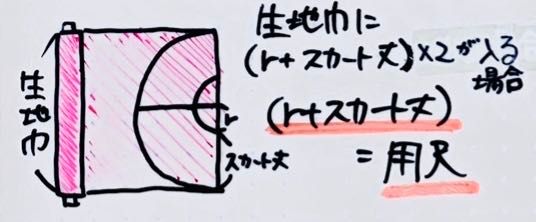 生地巾
r
スカート丈
生地巾に
(r+スカート丈)×2が入る
場合
(r+スカート丈)
=用尺